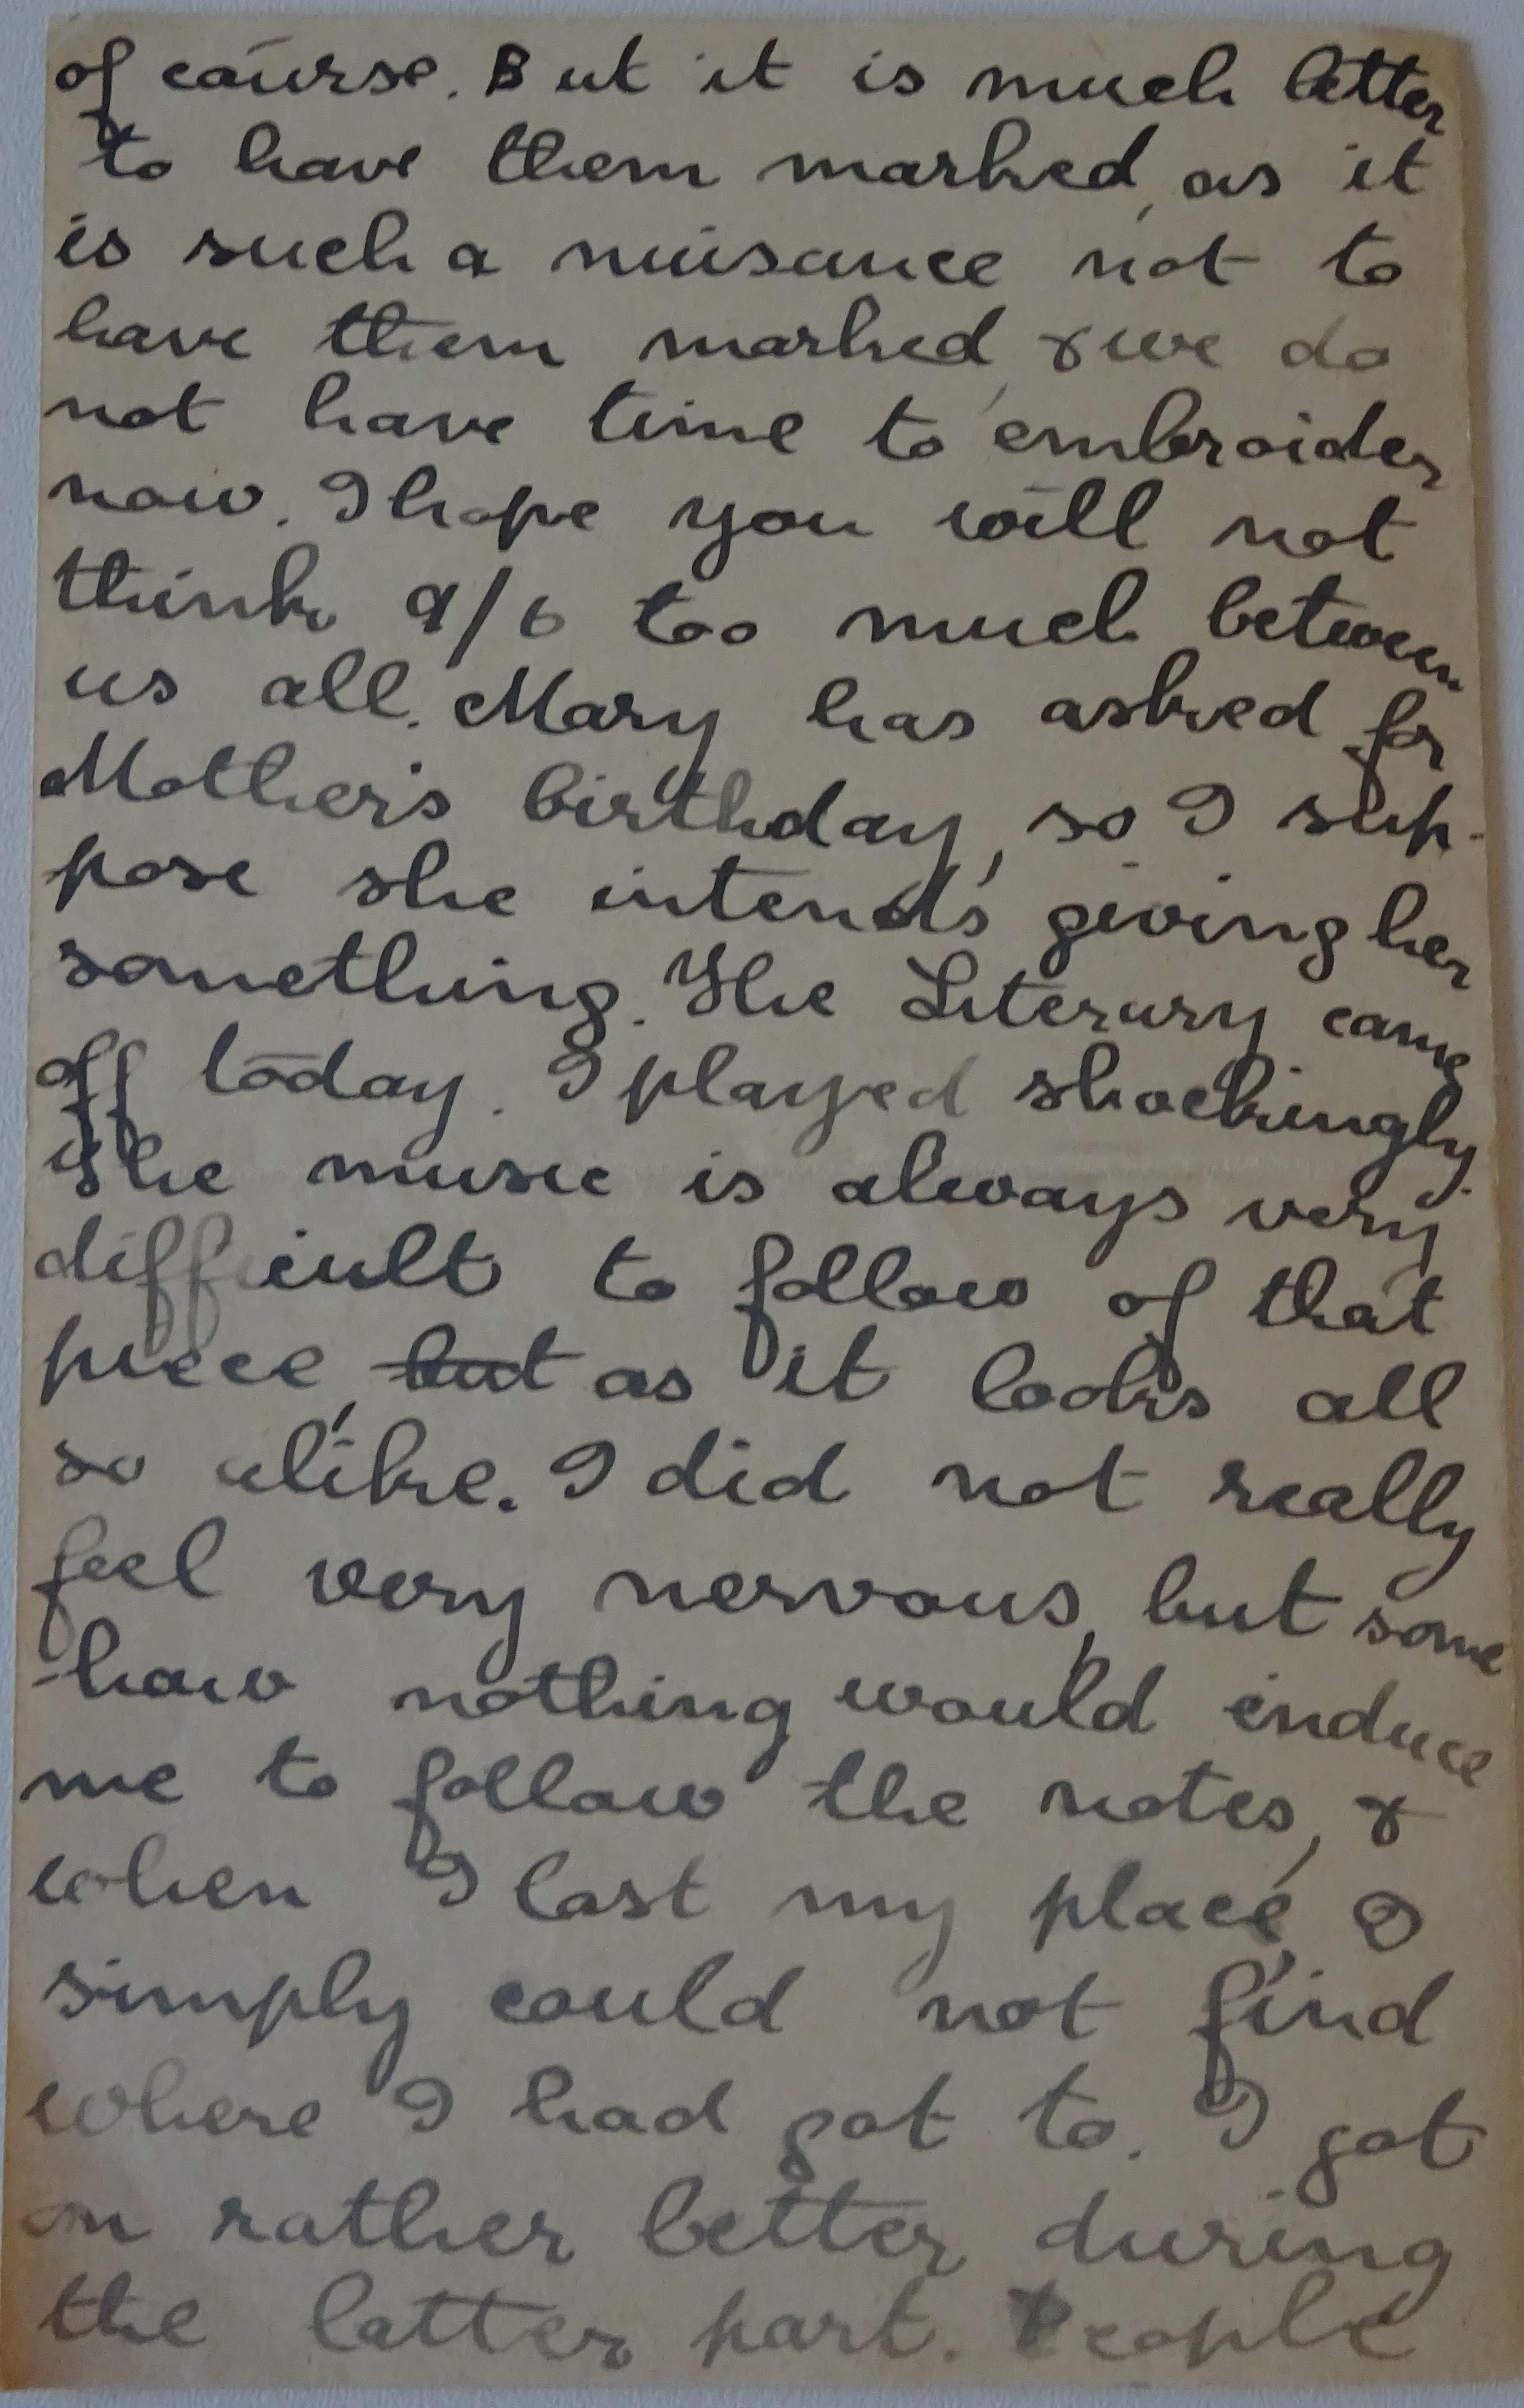 of course. But it is much better
to have them marked, as it
is such a nuisance not to
have them marked, & we do
not have time to embroider
now. I hope you will not
think 9/6 too much between
us all. Mary has asked for
Mother's birthday, so I sup-
pose she intends giving her
something. The Literary came
off today. I played shockingly.
The music is always very
difficult to follow of that
piece, but as it looks all
so alike. I did not really
feel very nervous, but some
-how nothing would induce
me to follow the notes, &
when I lost my place, I
simply could not find
where I had got to. I got
on rather better during
the latter part. People